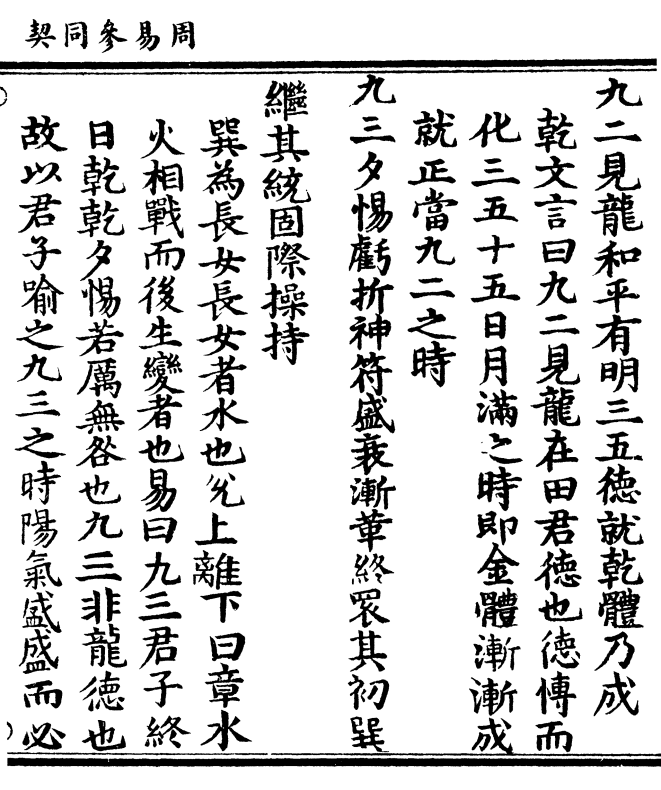 周易參同契
九二見龍和平有明三五德就乾體乃成
乾文言曰九二見龍在田君德也德博而
化三五十五日月滿之時即金體漸漸成
就正當九二之時
九三夕惕虧折神符盛衰漸華終睘其初巽
繼其統固際操持
巽為長女長女者水也兌上離下曰章水
火相戰而後生變者也易曰九三君子終
日乾乾夕惕若厲無咎也九三非龍德也
故以君子喻之九三之時陽氣盛盛而必